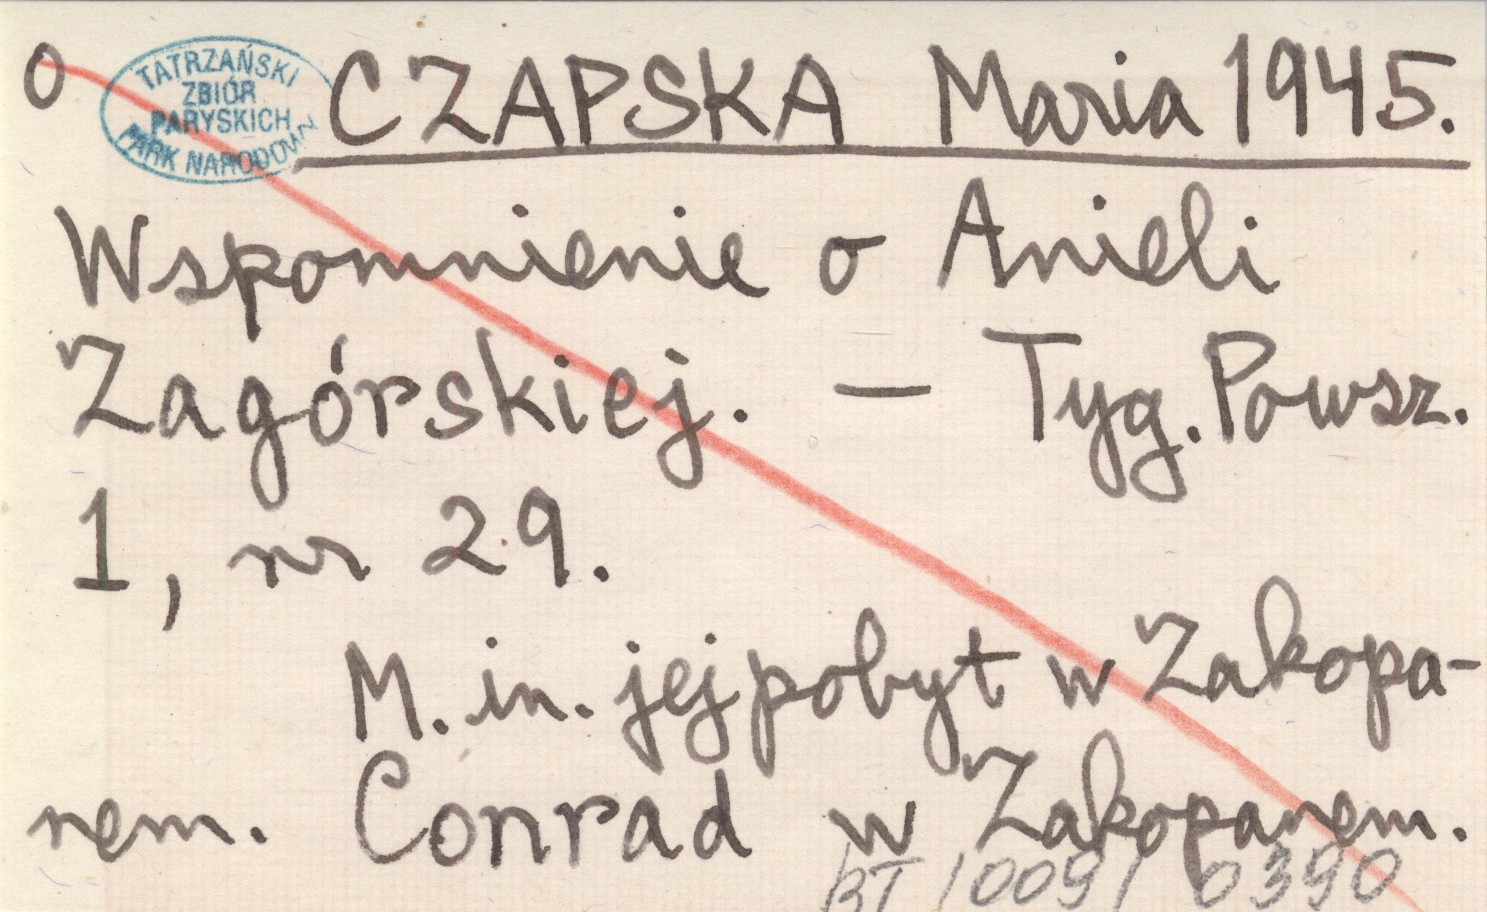 O
TATRZAŃSKI
ZBIÓR
PARYSKICH
PARK NARODOWY
CZAPSKA Maria 1945.
Wspomnienie o Anieli
Zagórskiej. — Tyg. Powsz.
1, nr 29.
M. in. jej pobyt w Zakopa-
nem. Conrad w Zakopanem.
BT / 009 / 0390